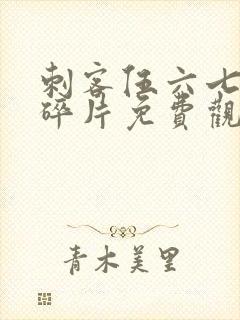 刺客伍六七
碎片免費觀
青木美里